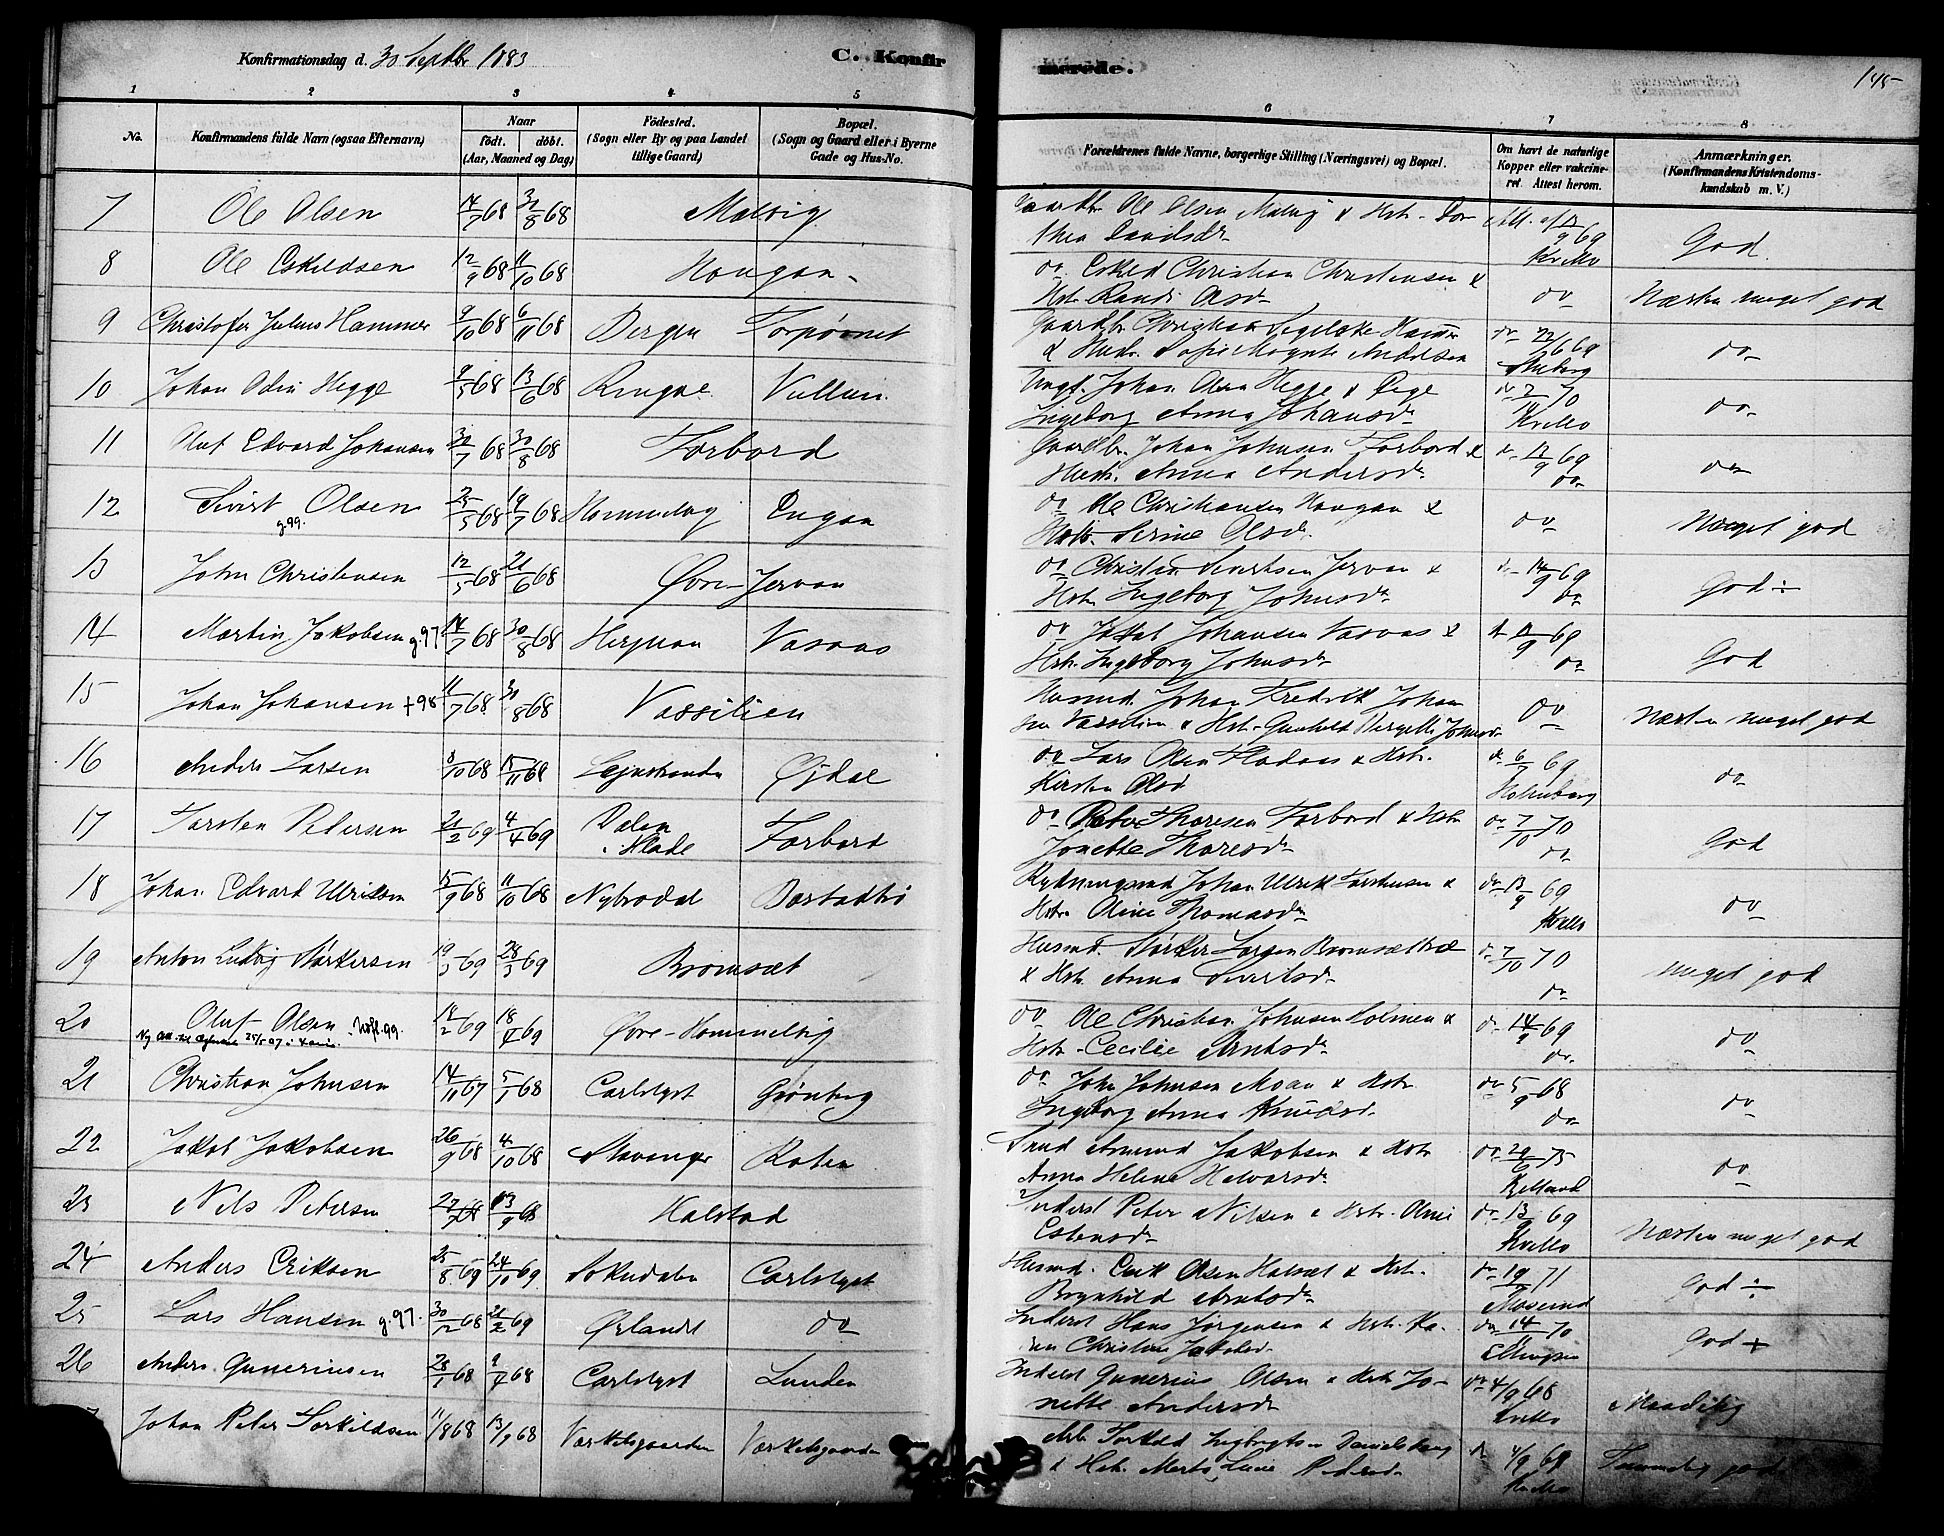 Konfirmationsdag d. 30 Septbr 1883
C. Konfirmerede.
145
1 2 3 4 5 6 7 8
No.
Konfirmandens fulde Navn (ogsaa Efternavn)
Naar
født. døbt.
(Aar, Maaned og Dag)
Fødested.
(Sogn eller By og paa Landet
tillige Gaard)
Bopæl.
(Sogn og Gaard eller i Byerne
Gade og Hus-No.
Forældrenes fulde Navne, borgerlige Stilling (Næringsvei) og Bopæl.
Om havt de naturlige
Kopper eller vakcine-
ret. Attest herom.
Anmærkninger.
(Konfirmandens Kristendoms-
kundskab m. V.)
7 Ole Olsen 14/7 68 30/8 68 Malvig Gaardbr Ole Olsen Malvig & Hstr. Dor
thea 69 Kvello God.
8 Ole Eskildsen 12/9 68 11/10 68 Hougan do Eskild Christian Christensen &
Hstr. Randi Olsdr do Næsten meget god
9 Christofer Julius Hammer 9/10 68 6/11 68 Bergen Torpøvnet Gaardbr Christian
& Hustr. Sofie Andersen do 22/6 69 do
10 Johan Odin Hegge 9/5 68 13/6 68 Ringve Vullum Ungk. Johan Olsen Hegge & Pige
Ingeborg Anna Johansdr do 70 Kvello do
11 Oluf Edvard Johansen 30/7 68 30/8 68 Forbord Gaardbr. Johan Johnsen Forbord &
Hustr. Anna Andersdr 69 do do
12 Sivert Olsen 25/5 68 19/7 68 Hommelvig Engan do Ole Christiansen Hougan &
g.99. Hstr. Serine Olsdr. do Meget god
13 John Christensen 12/5 68 21/6 68 Øvre Jervan do Christian Sivertsen Jervan &
Hstr Ingeborg Johnsdr 14/9 69 do God ÷
14 Martin Jakobsen g.97 14/7 68 30/8 68 Vasaas do Jakob Johansen Vasaas &
Hstr. Ingeborg Johnsdr 69 do God
15 Johan Johansen +98 11/7 68 30/8 68 Vassilien Husmd Johan Fredrik Johan
sen & Hstr. Gunhild Johnsdr do Næsten meget god
16 Anders Larsen 8/10 68 15/11 68 Lejnstranden Øjdal do Lars Olsen & Hstr.
Kirsten Olsd 69 do
17 Torsten Petersen 21/2 69 4/4 69 Dalen
i Hlade Forbord do Peter Thoresen Forbord & Hstr
Jonette Thoresdr do 7/10 70 do God
18 Johan Edvard Ulriksen 15/9 68 11/10 68 Nybrodal Bostadbø Rydningsmd Johan Ulrik Torstensen &
Hstr Oline Thomasdr do 13/9 69 Kvello do
19 Anton Ludvig Størkersen 19/3 69 28/3 69 Bromsæt Husmd. Størker Larsen &
Hstr. Anna Sivertsdr 7/10 70 do meget god
20 Oluf Olsen 14/2 69 18/4 69 Øvre-Hommelvig do Ole Christian Johnsen Solmen &
Hstr. Cecilie Arntsdr 14/9 69 do. do
21 Christian Johnsen 14/11 67 5/1 68 Carlslyst Grønberg do John Johnsen Moan & Hstr
Ingeborg Anna Knudsd. do 5/9 68 do do
22 Jakob Jakobsen 26/9 68 4/10 68 Stavanger Roten Amund Jakobsen & Hstr
Anna Helene Halvorsdr do 29/6 75 Kielland do
23 Nils Petersen 27/7 68 13/9 68 Halstad Inderst Peter Nilsen & Hstr. Oline
Estensdr do 13/9 69 Kvello Næsten meget god
24 Anders Eriksen 25/8 69 24/10 69 Carlslyst Husmd. Erik Olsen Halset & Hstr.
Brynhild Arntsdr do 19/ 71 God ÷
25 Lars Hansen g.97. 30/12 68 21/2 69 Ørlandet do Inderst Hans Jørgensen & Hstr. Ka-
ren Christine Jakobsd. do 14/ 70 God +
26 Anders Gunneriussen 28/1 68 68 Carlslyst Lunden Inderst Gunerius Olsen & Hstr. Jo-
nette Andersdr do 4/9 68 Kvello Maadelig
Johan Peter Torkildsen 11/8 68 13/9 68 Værkelsgaarden Værkelsgaarden Arb. Torkild Ingbrigtsen
& Hstr. Marte Lucie Pedersdr 4/9 69 Kvello Temmelig god